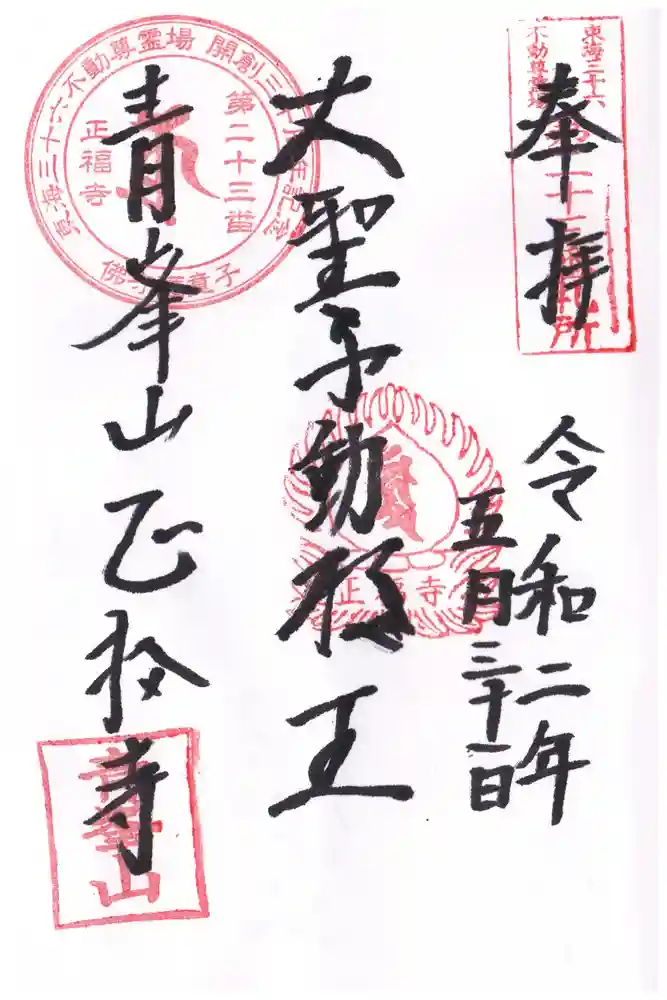 奉拝
東海三十六
不動尊霊場
第二十三番札所
令和二年
五月三十一日
大聖不動明王
正福寺
青峯山正福寺
東海三十六不動尊霊場 開創三十周年記念
第二十三番
正福寺
童子
青峯山